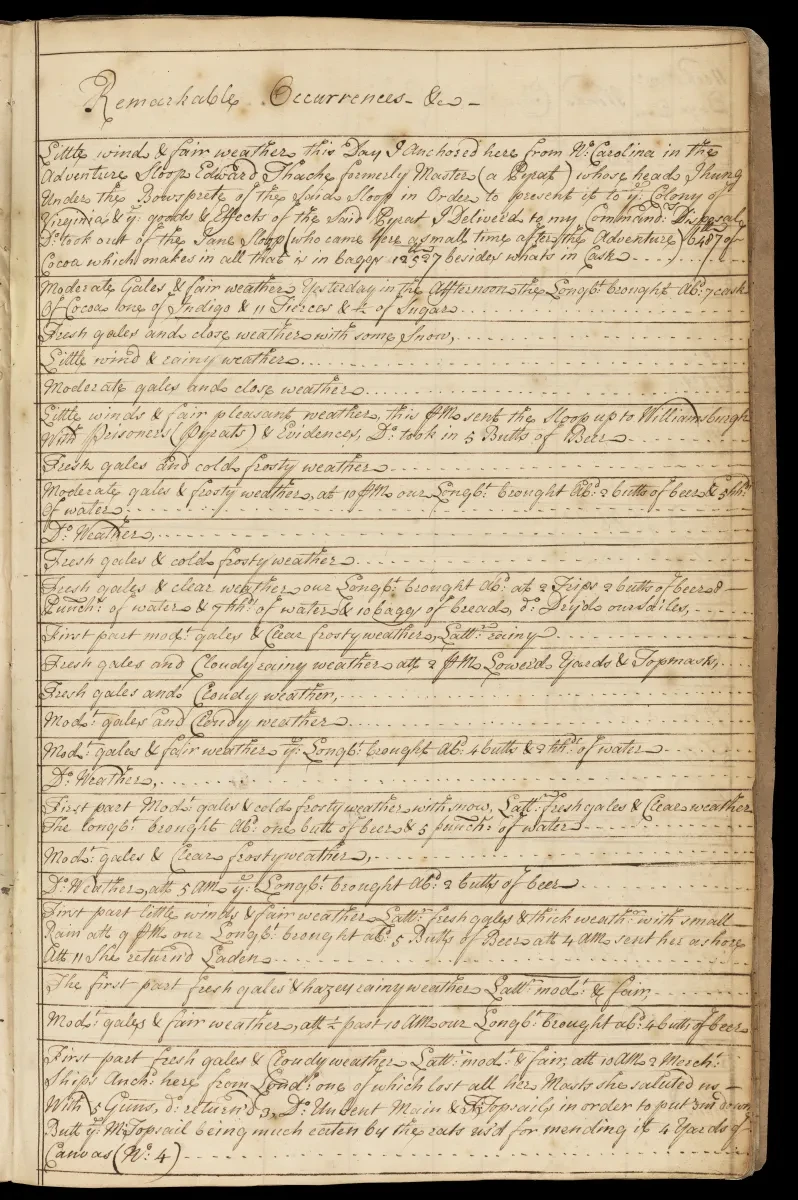 Remarkable Occurrences - &c -
Little wind & fair weather this Day I Anchored here from No. Carolina in the
Adventure Sloop Edward Thache formerly Master (a Pyrat) whose head I hung
Under the Bowsprete of the Said Sloop in Order to present it to ye: Colony of
Virginia & ye: goods & Effects of the Said Pyrat I Deliverd to my Command: Disposal
Do: took out of the Jane Sloop (who came here a small time after the Adventure) 6487 of
Cocoa which makes in all that is in baggs 12527 besides whats in Cask
Moderate Gales & fair weather Yesterday in the Affternoon the Longbt: brought Abd: 7 cask
Of Cocoa one of Indigo & 11 Tierces & of Sugar
Fresh gales and close weather with some Snow,
Little wind & rainy weather
Moderate gales and close weather
Little winds & fair pleasant weather, this PM sent the Sloop up to Williamsburgh
With Prisoners (Pyrats) & Evidences, Do: took in 5 Butts of Beer
Fresh gales and cold frosty weather
Moderate gales & frosty weather, at 10 PM our Longbt: brought Abd: 2 butts of beer & 5 hhds
Of water
Do: Weather,
Fresh gales & cold frosty weather
Fresh gales & clear weather our Longbt: brought Abd: at 2 Trips 2 butts of beer 8 -
Punchs: of water & 7 hhds: of water & 10 baggs of bread, do: Dryd our Sailes,
First part modt: gales & Clear frosty weather, Lattr: rainy
Fresh gales and Cloudy rainy weather att 2 PM Lowerd Yards & Topmasts,
Fresh gales and Cloudy weather,
Modt: gales and Cloudy weather
Modt: gales & fair weather ye: Longbt: brought Abd: 4 butts & 2 hhds: of water
Do: Weather,
First part Modt: gales & cold frosty weather with snow, Lattr: fresh gales & Clear weather
The longbt: brought Abd: one butt of beer & 5 punchs: of water
Modt: gales & Clear frosty weather,
Do: Weather, att 5 AM ye: Longbt: brought Abd: 2 butts of beer
First part little winds & fair weather Lattr: fresh gales & thick weathr: with small
Rain att 9 PM our Longbt: brought abd: 5 Butts of Beer att 4 AM sent her ashore
Att 11 She return'd Laden
The first part fresh gales & hazey rainy weather Lattr: modt: & fair
Modt: gales & fair weather, att ½ past 10 AM our Longbt: brought abd: 4 butts of beer
First part fresh gales & Cloudy weather Lattr: modt: & fair, att 10 AM 2 Mercht:
Ships Anchd: here from Londn: one of which lost all her Masts she saluted us -
With 5 Guns, do: return'd 3, Do: Unbent Main & Topsails in order to put down
Butt ye: M: Topsail being much eaten by the rats us'd for mending it 4 Yards of
Canvas (No: 4)